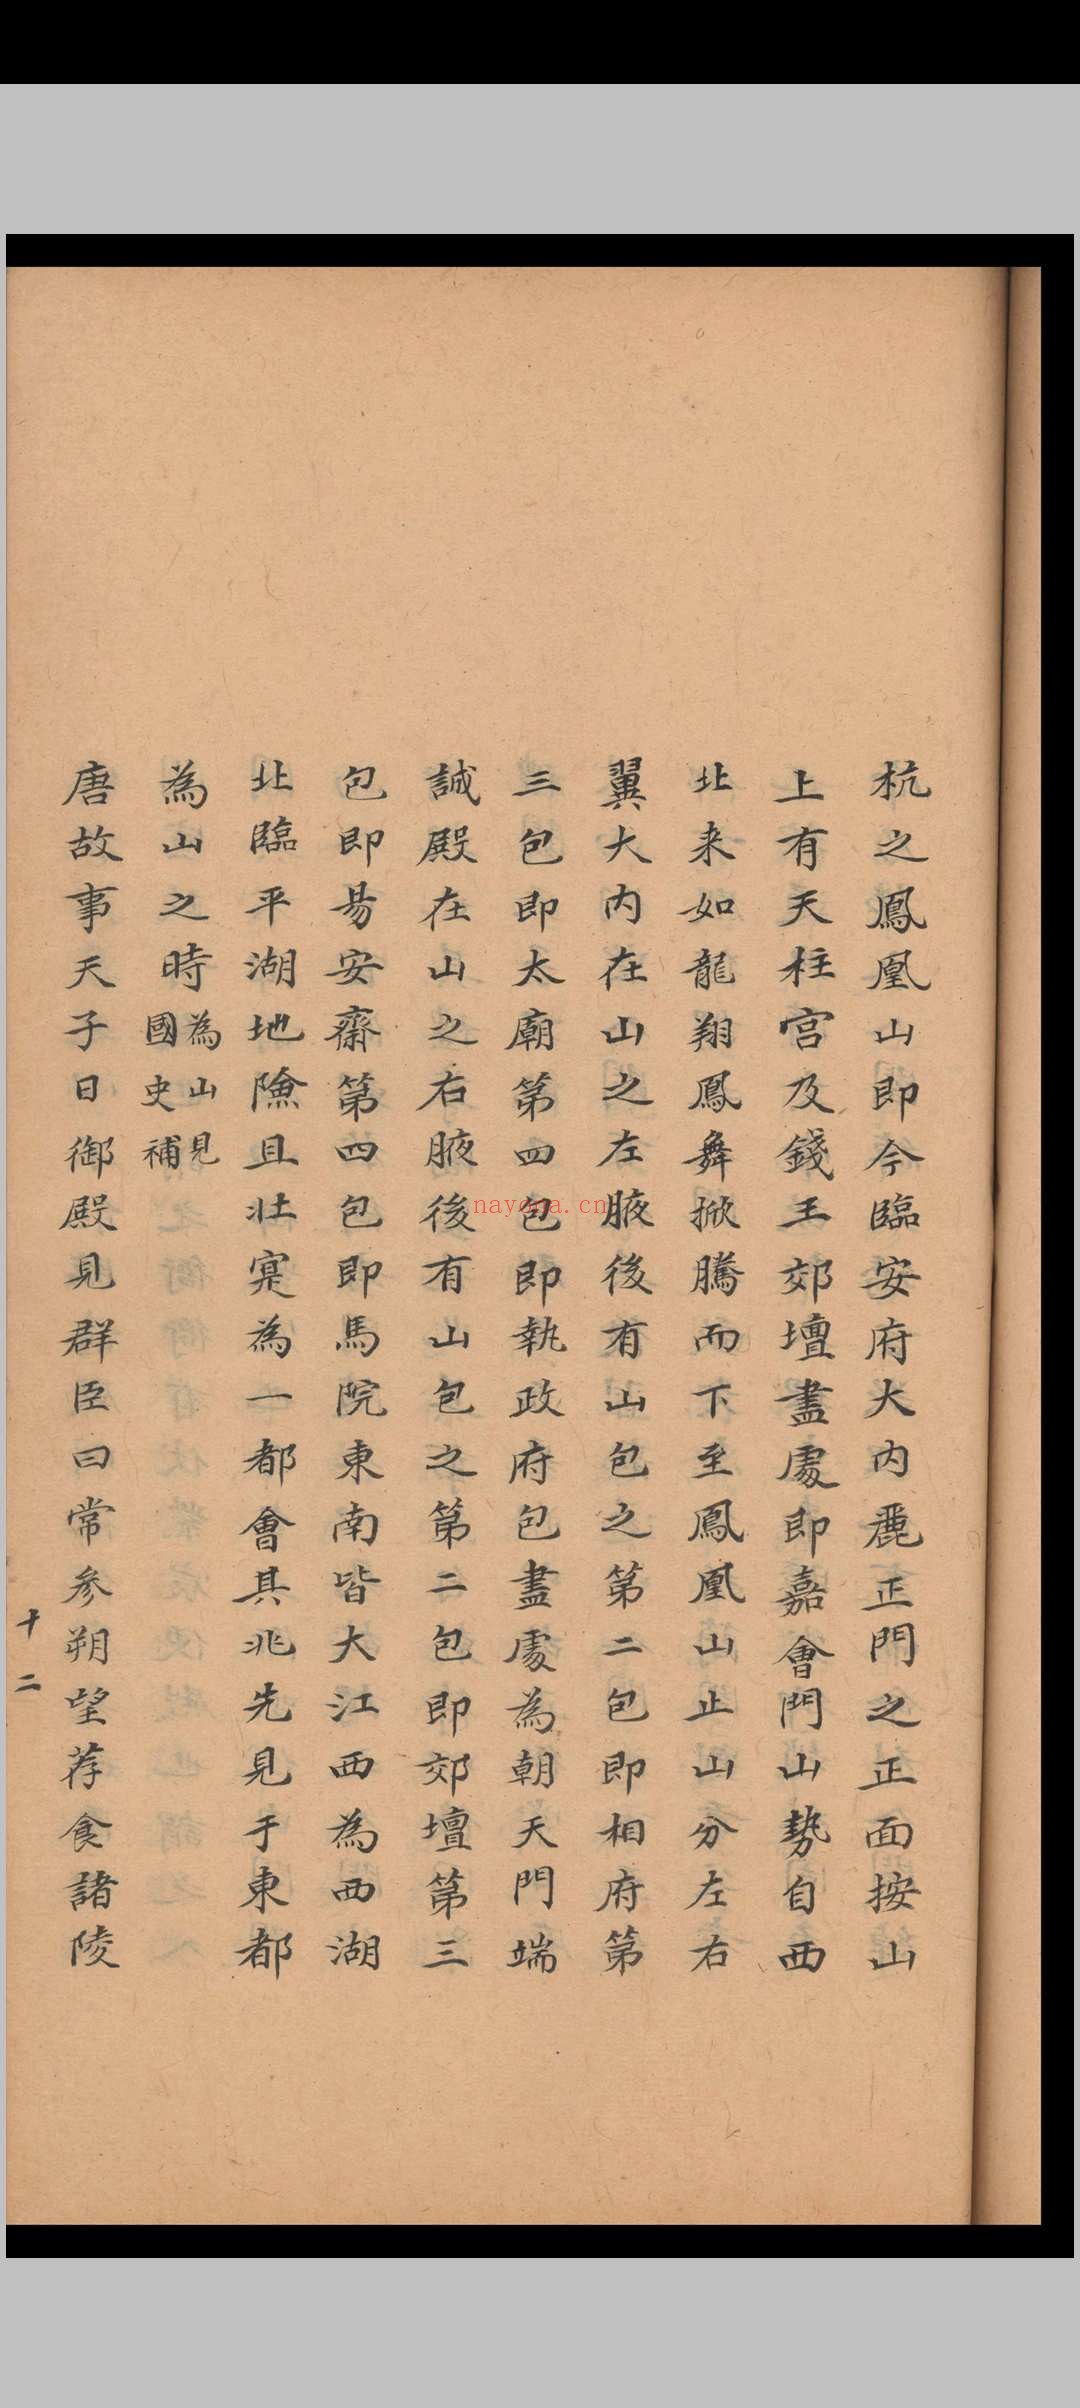 杭之鳳凰山即今臨安府大内麗正門之正面按山
上有天柱宫及錢王郊壇盡處即嘉會門山勢自西
北来如龍翔鳳舞掀騰而下至鳳凰山止山分左右
翼大内在山之左腋後有山包之第二包即相府第
三包即太廟第四包即執政府包盡處為朝天門端
誠殿在山之右腋後有山包之第二包即郊壇第三
包即易安齋第四包即馬院東南皆大江西為西湖
北臨平湖地險且壯寔為一都會其兆先見于東都
為山之時為山見國史補
唐故事天子日御殿見群臣曰常参朔望荐食諸陵
十二
nayona.cn